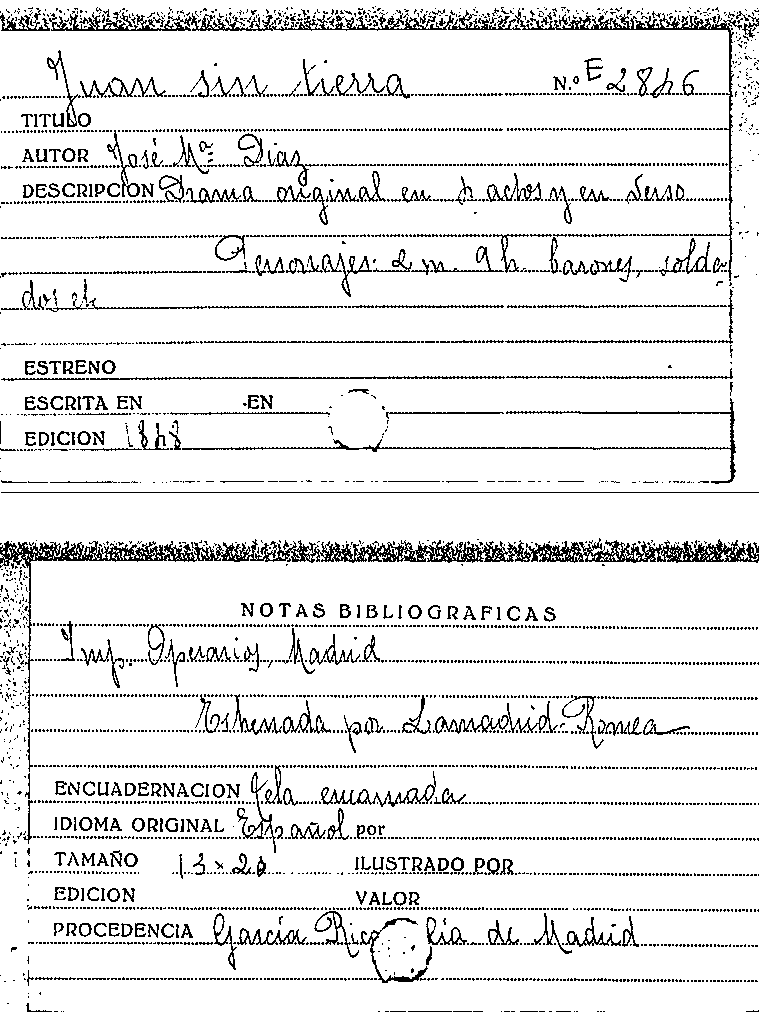 Juan sin tierra N.º E 2846
TITULO
AUTOR José Mª Diaz
DESCRIPCION Drama original en 4 actos y en verso
Personajes: 2 m. 9 h. barones, solda-
dos etc
ESTRENO
ESCRITA EN EN
EDICION 1848
NOTAS BIBLIOGRAFICAS
Imp. Operarios, Madrid
Estrenada por Lamadrid-Romea
ENCUADERNACION tela encarnada
IDIOMA ORIGINAL Español por
TAMAÑO 13 x 20 ILUSTRADO POR
EDICION VALOR
PROCEDENCIA García Rico lía de Madrid